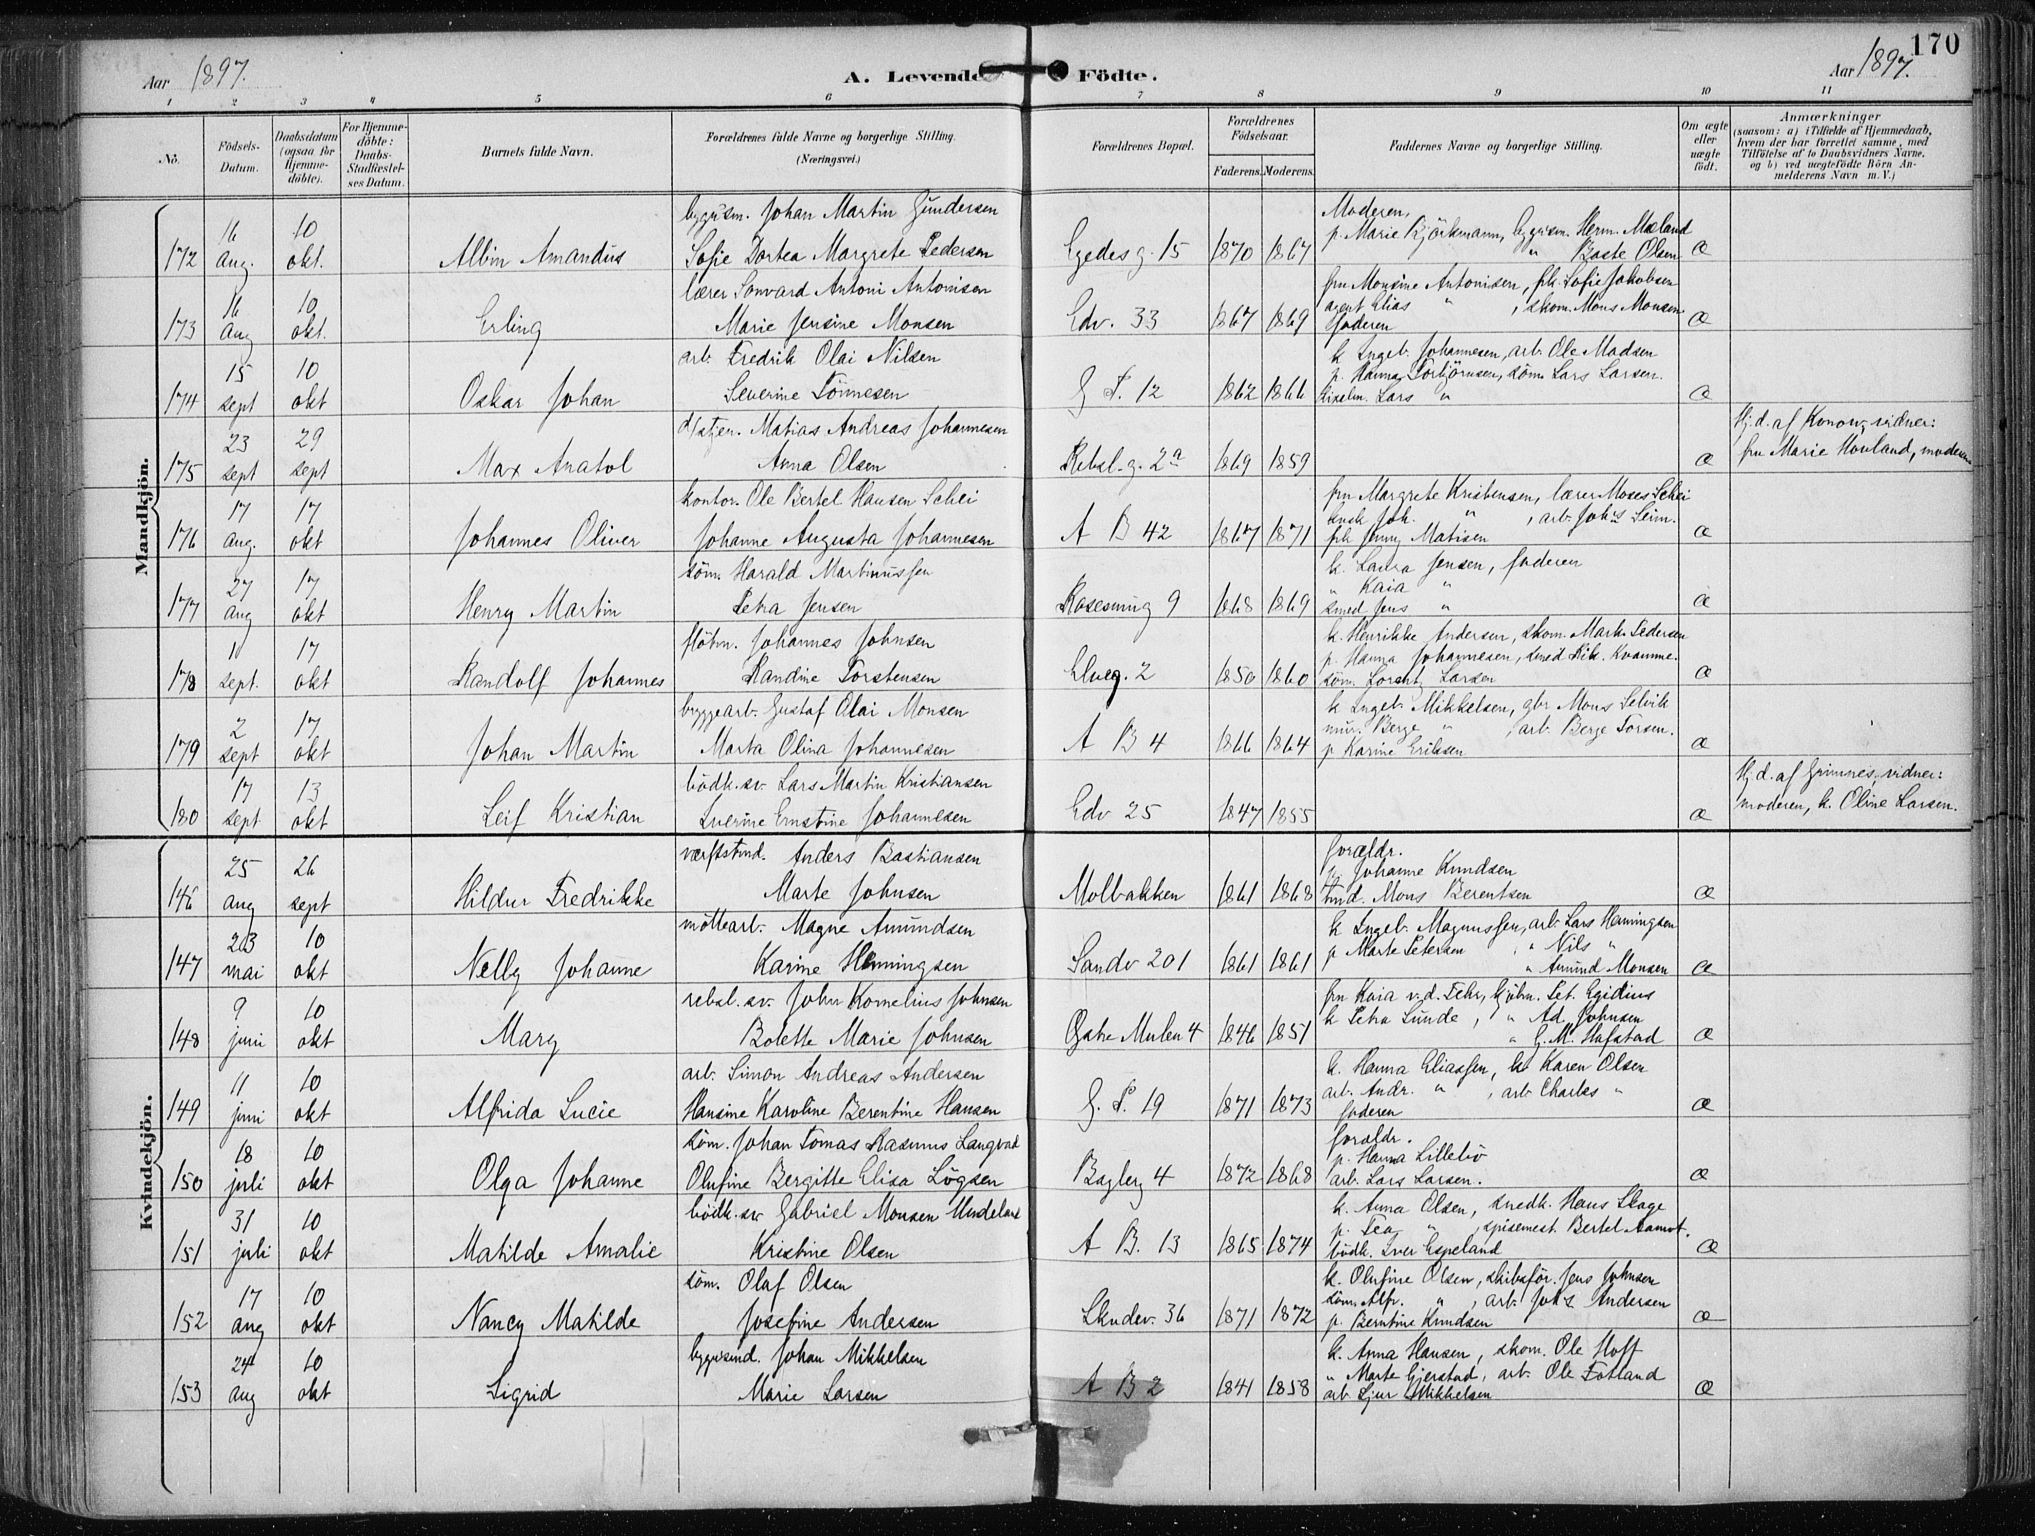 170
Aar 1897.
A. Levende Födte.
Aar 1897.
1 2 3 4 5 6 7 8 9 10 11
No.
Födsels-Datum.
Daabsdatum (ogsaa for Hjemme-döbte).
For Hjemme-döbte: Daabs-Stadfæstel-ses Datum.
Barnets fulde Navn.
Forældrenes fulde Navne og borgerlige Stilling. (Næringsvei.)
Forældrenes Bopæl.
Forældrenes Födselsaar.
Faderens. Moderens.
Faddernes Navne og borgerlige Stilling.
Om ægte eller uægte födt.
Anmærkninger (saasom: a) i Tilfælde af Hjemmedaab, hvem der har forrettet samme, med Tilföielse af to Daabsvidners Navne, og b) ved uægtefödte Börn An-melderens Navn m. V.)
Mandkjön.
172 16 aug. 10 okt. Albin Amandus
bygn.sm. Johan Martin Gundersen
Sofie Dortea Margrete Pedersen
Egedes g. 15 1870 1867
Moderen,
p. Marie Björkmann, bygn.sm. Herm. Mæland
" Baste Olsen
æ
173 16 aug 10 okt. Erling
lærer Sonvard Antoni Antonisen
Marie Jensine Monsen
Edv. 33 1867 1869
fru Monsine Antonisen, frk. Sofie Jakobsen
agent Elias " , skom. Mons Monsen
faderen
æ
174 15 sept 10 okt Oskar Johan
arb. Fredrik Olai Nilsen
Severine Tönnesen
G P. 12 1862 1866
k Ingeb. Johannesen, arb. Ole Madsen
p. Hanna Torbjörnsen, söm. Lars Larsen.
Lars "
æ
175 23 sept 29 sept Max Anatol
Matias Andreas Johannesen
Anna Olsen
Rebsl.g. 2a 1869 1859
æ
Hj.d. af Konow, vidner:
fru Marie Hovland, moderen
176 17 aug. 17 okt Johannes Oliver
kontor. Ole Bertel Hansen Schei
Johanne Augusta Johannesen
A B 42 1867 1871
fru Margrete Kristensen, lærer Moses Schei
kusk Joh. " , arb. Johs Seim.
frk Jenny Matisen
æ
177 27 aug 17 okt Henry Martin
söm. Harald Martinussen
Petra Jensen
Rosesmug 9 1868 1869
k. Laura Jensen, faderen
" Kaia "
smed Jens "
æ
178 11 sept. 17 okt Randolf Johannes
flötm. Johannes Johnsen
Randine Torstensen
Elveg. 2 1850 1860
k. Henrikke Andersen, skom. Mark. Pedersen
p. Hanna Johannesen, smed Rik. Kvamme.
söm. Lorentz Larsen
æ
179 2 sept 17 okt Johan Martin
byggearb. Gustaf Olai Monsen
Marta Olina Johannesen
A B 4 1866 1864
k Ingeb. Mikkelsen, gbr Mons Selvik
mur. Berge " , arb. Berge Torsen.
p Karine Eriksen
æ
180 17 sept 13 okt Leif Kristian
bödk.sv. Lars Martin Kristiansen
Severine Ernstine Johannesen
Edv 25 1847 1855
æ
Hj.d. af Grimnes, vidner:
moderen, k. Oline Larsen.
Kvindekjön.
146 25 aug 26 sept Hildur Fredrikke
værftstmd. Anders Bastiansen
Marte Johnsen
Molbakken 1861 1868
forældr.
p. Johanne Knudsen
tmd. Mons Berentsen
æ
147 23 mai 10 okt Nelly Johanne
möllearb. Magne Amundsen
Karine Hemmingsen
Sandv 201 1861 1861
k Ingeb. Magnussen, arb. Lars Hemingsen
p Marte Petersen " Nils "
" Amund Monsen
æ
148 9 juni 10 okt Mary
rebsl.sv. John Kornelius Johnsen
Bolette Marie Johnsen
Östre Mulen 4 1846 1851
fru Kaia v.d. Fehr, kjöbm. Pet. Egidius
k Petra Sunde, " Ad. Johnsen
" G. M. Hafstad
æ
149 11 juni 10 okt Alfrida Lucie
arb. Simon Andreas Andersen
Hansine Karoline Berentine Hansen
G. P. 19 1871 1873
k. Hanna Eliassen, k. Karen Olsen
arb. Andr. " , arb Charles "
faderen
æ
150 18 juli 10 okt Olga Johanne
söm. Johan Tomas Rasmus Langvad
Olufine Bergitte Elisa Lögsen
Baglerg 4 1872 1868
forældr.
p. Hanna Lillebö
arb. Lars Larsen.
æ
151 31 juli 10 okt Matilde Amalie
bödk.sv Gabriel Monsen Undeland
Kristine Olsen
A B. 13 1865 1874
k. Anna Olsen, snedk. Hans Skage
p. Tea " , spisemest. Bertel Aamot.
bödk. Iver Espeland
æ
152 17 aug 10 okt Nancy Matilde
söm. Olaf Olsen
Josefine Andersen
Skudev. 36 1871 1872
k. Olufine Olsen, skibsför. Jens Johnsen
söm. Alfr. " , arb. Johs Andersen
p. Berntine Knudsen
æ
153 24 aug 10 okt Sigrid
Johan Mikkelsen
Marie Larsen
A B 2 1841 1858
k. Anna Hansen, skom. Ole Hoff
" Marte Gjerstad, arb. Ole Fotland
arb. Sjur Mikkelsen
æ